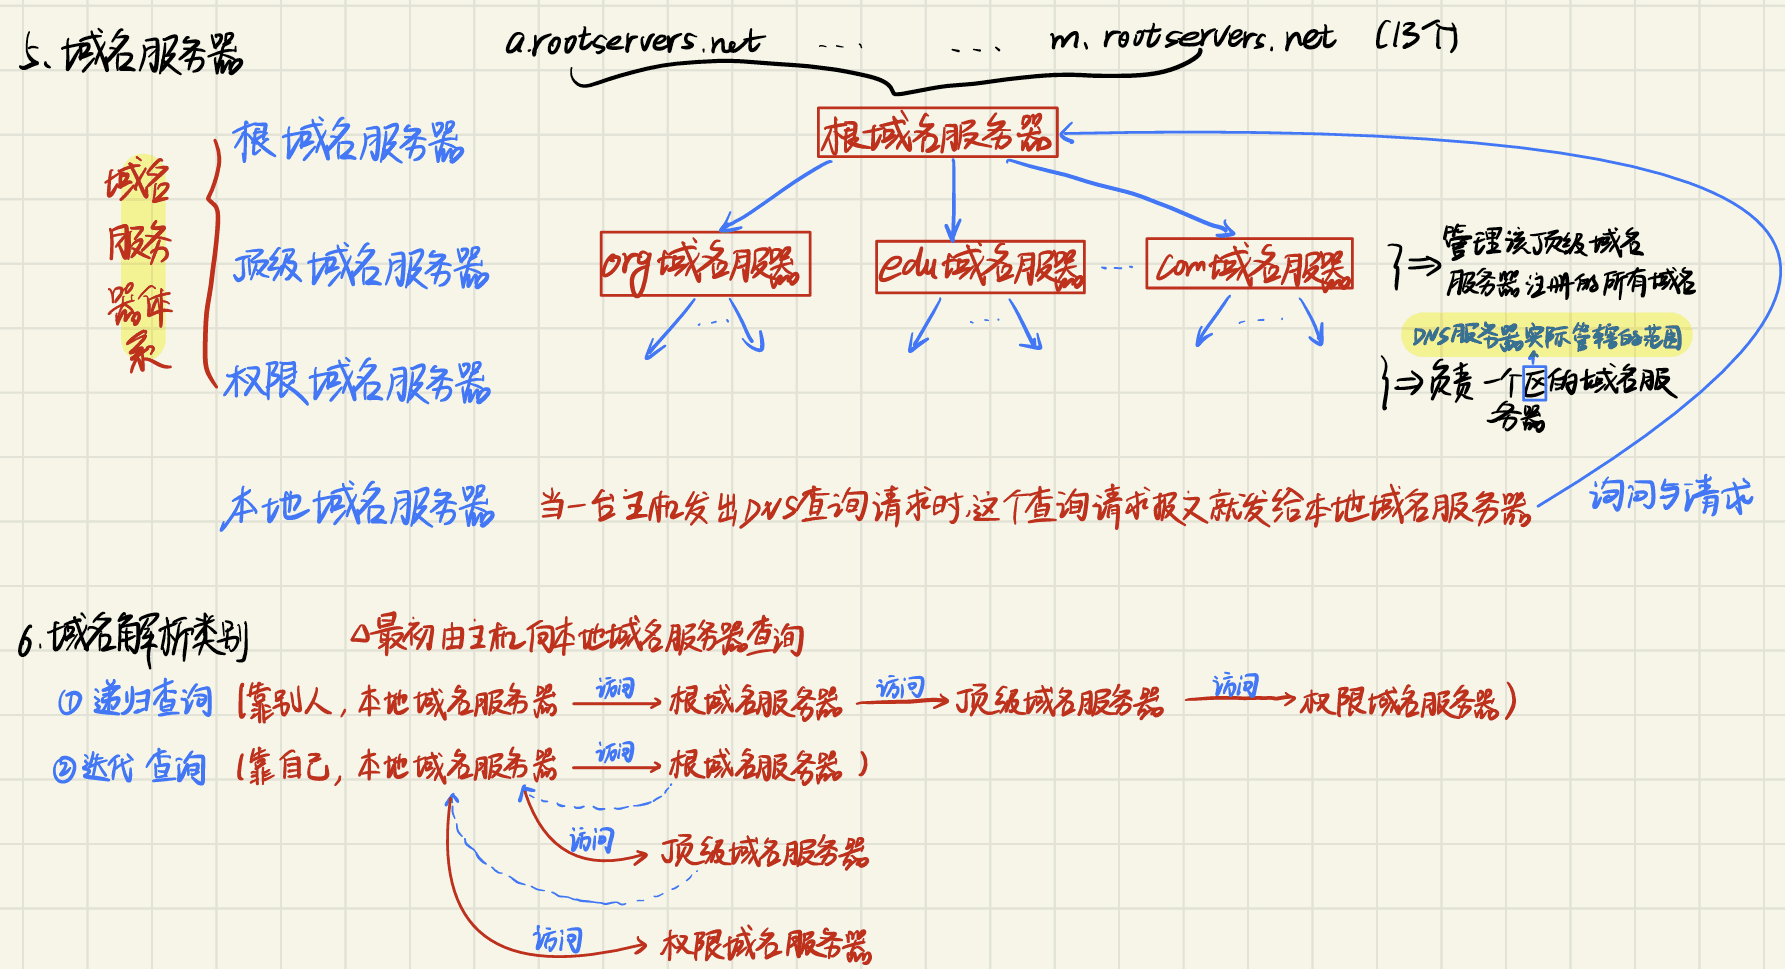 5、域名服务器
a.rootservers.net ···· ···· m.rootservers.net (13个)
域名
服务
器体
系
根域名服务器
顶级域名服务器
权限域名服务器
根域名服务器
org域名服务器
edu域名服务器
····
com域名服务器
⇒ 管理该顶级域名
服务器注册的所有域名
DNS服务器实际管辖的范围
⇒ 负责一个区的域名服
务器
本地域名服务器 当一台主机发出DNS查询请求时,这个查询请求报文就发给本地域名服务器
询问与请求
6.域名解析类别 △最初由主机向本地域名服务器查询
①递归查询 (靠别人,本地域名服务器 访问→ 根域名服务器 访问→ 顶级域名服务器 访问→ 权限域名服务器)
②迭代查询 (靠自己,本地域名服务器 访问→ 根域名服务器)
访问→ 顶级域名服务器
访问→ 权限域名服务器